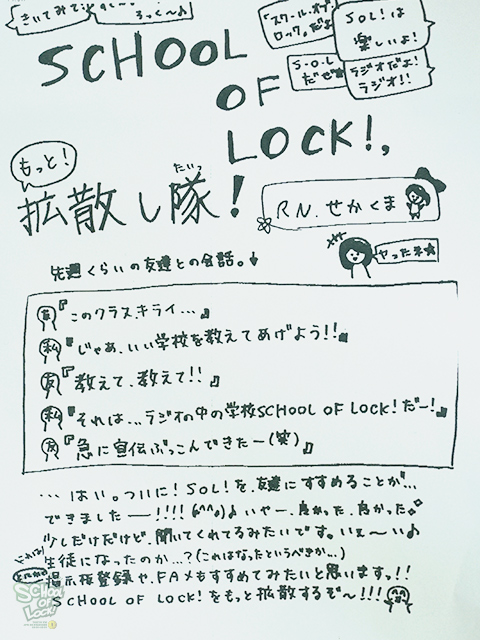 きいてみて
ろっく〜♪
「スクール・オブ
ロック。だよ
SOL!は
楽しいよ!
S・O・L
だぜ
ラジオだよ!
ラジオ!!
SCHOOL
OF
LOCK!,
もっと!
たいっ
拡散し隊!
RN.せかくま
ヤッタネ
先週くらいの友達との会話。↓
友『このクラス、キライ…』
私『じゃあ、いい学校を教えてあげよう!!』
友『教えて、教えて!!』
私『それは…ラジオの中の学校SCHOOL OF LOCK!だー!』
友『急に宣伝ぶっこんできたー(笑)』
…はい。ついに!SOL!を、友達にすすめることが…
できましたー!!!!(^^)♪いやー、良かった、良かった
少しだけだけど、聞いてくれてるみたいです。いぇ〜い♪
これは!
生徒になったのか…?(これはなったというべきか…)
とにかく
掲示板登録や、FAXもすすめてみたいと思いますっ!!
SCHOOL OF LOCK!をもっと拡散するぞ〜!!!
SCHOOL
OF
LOCK!